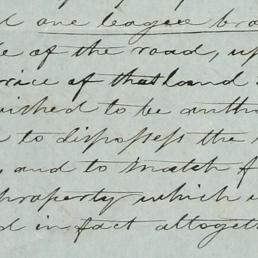 one league bro
of the road, up
rice of that land
ished to be auth
to dispossess the
and to match f
property which
d in fact altoget